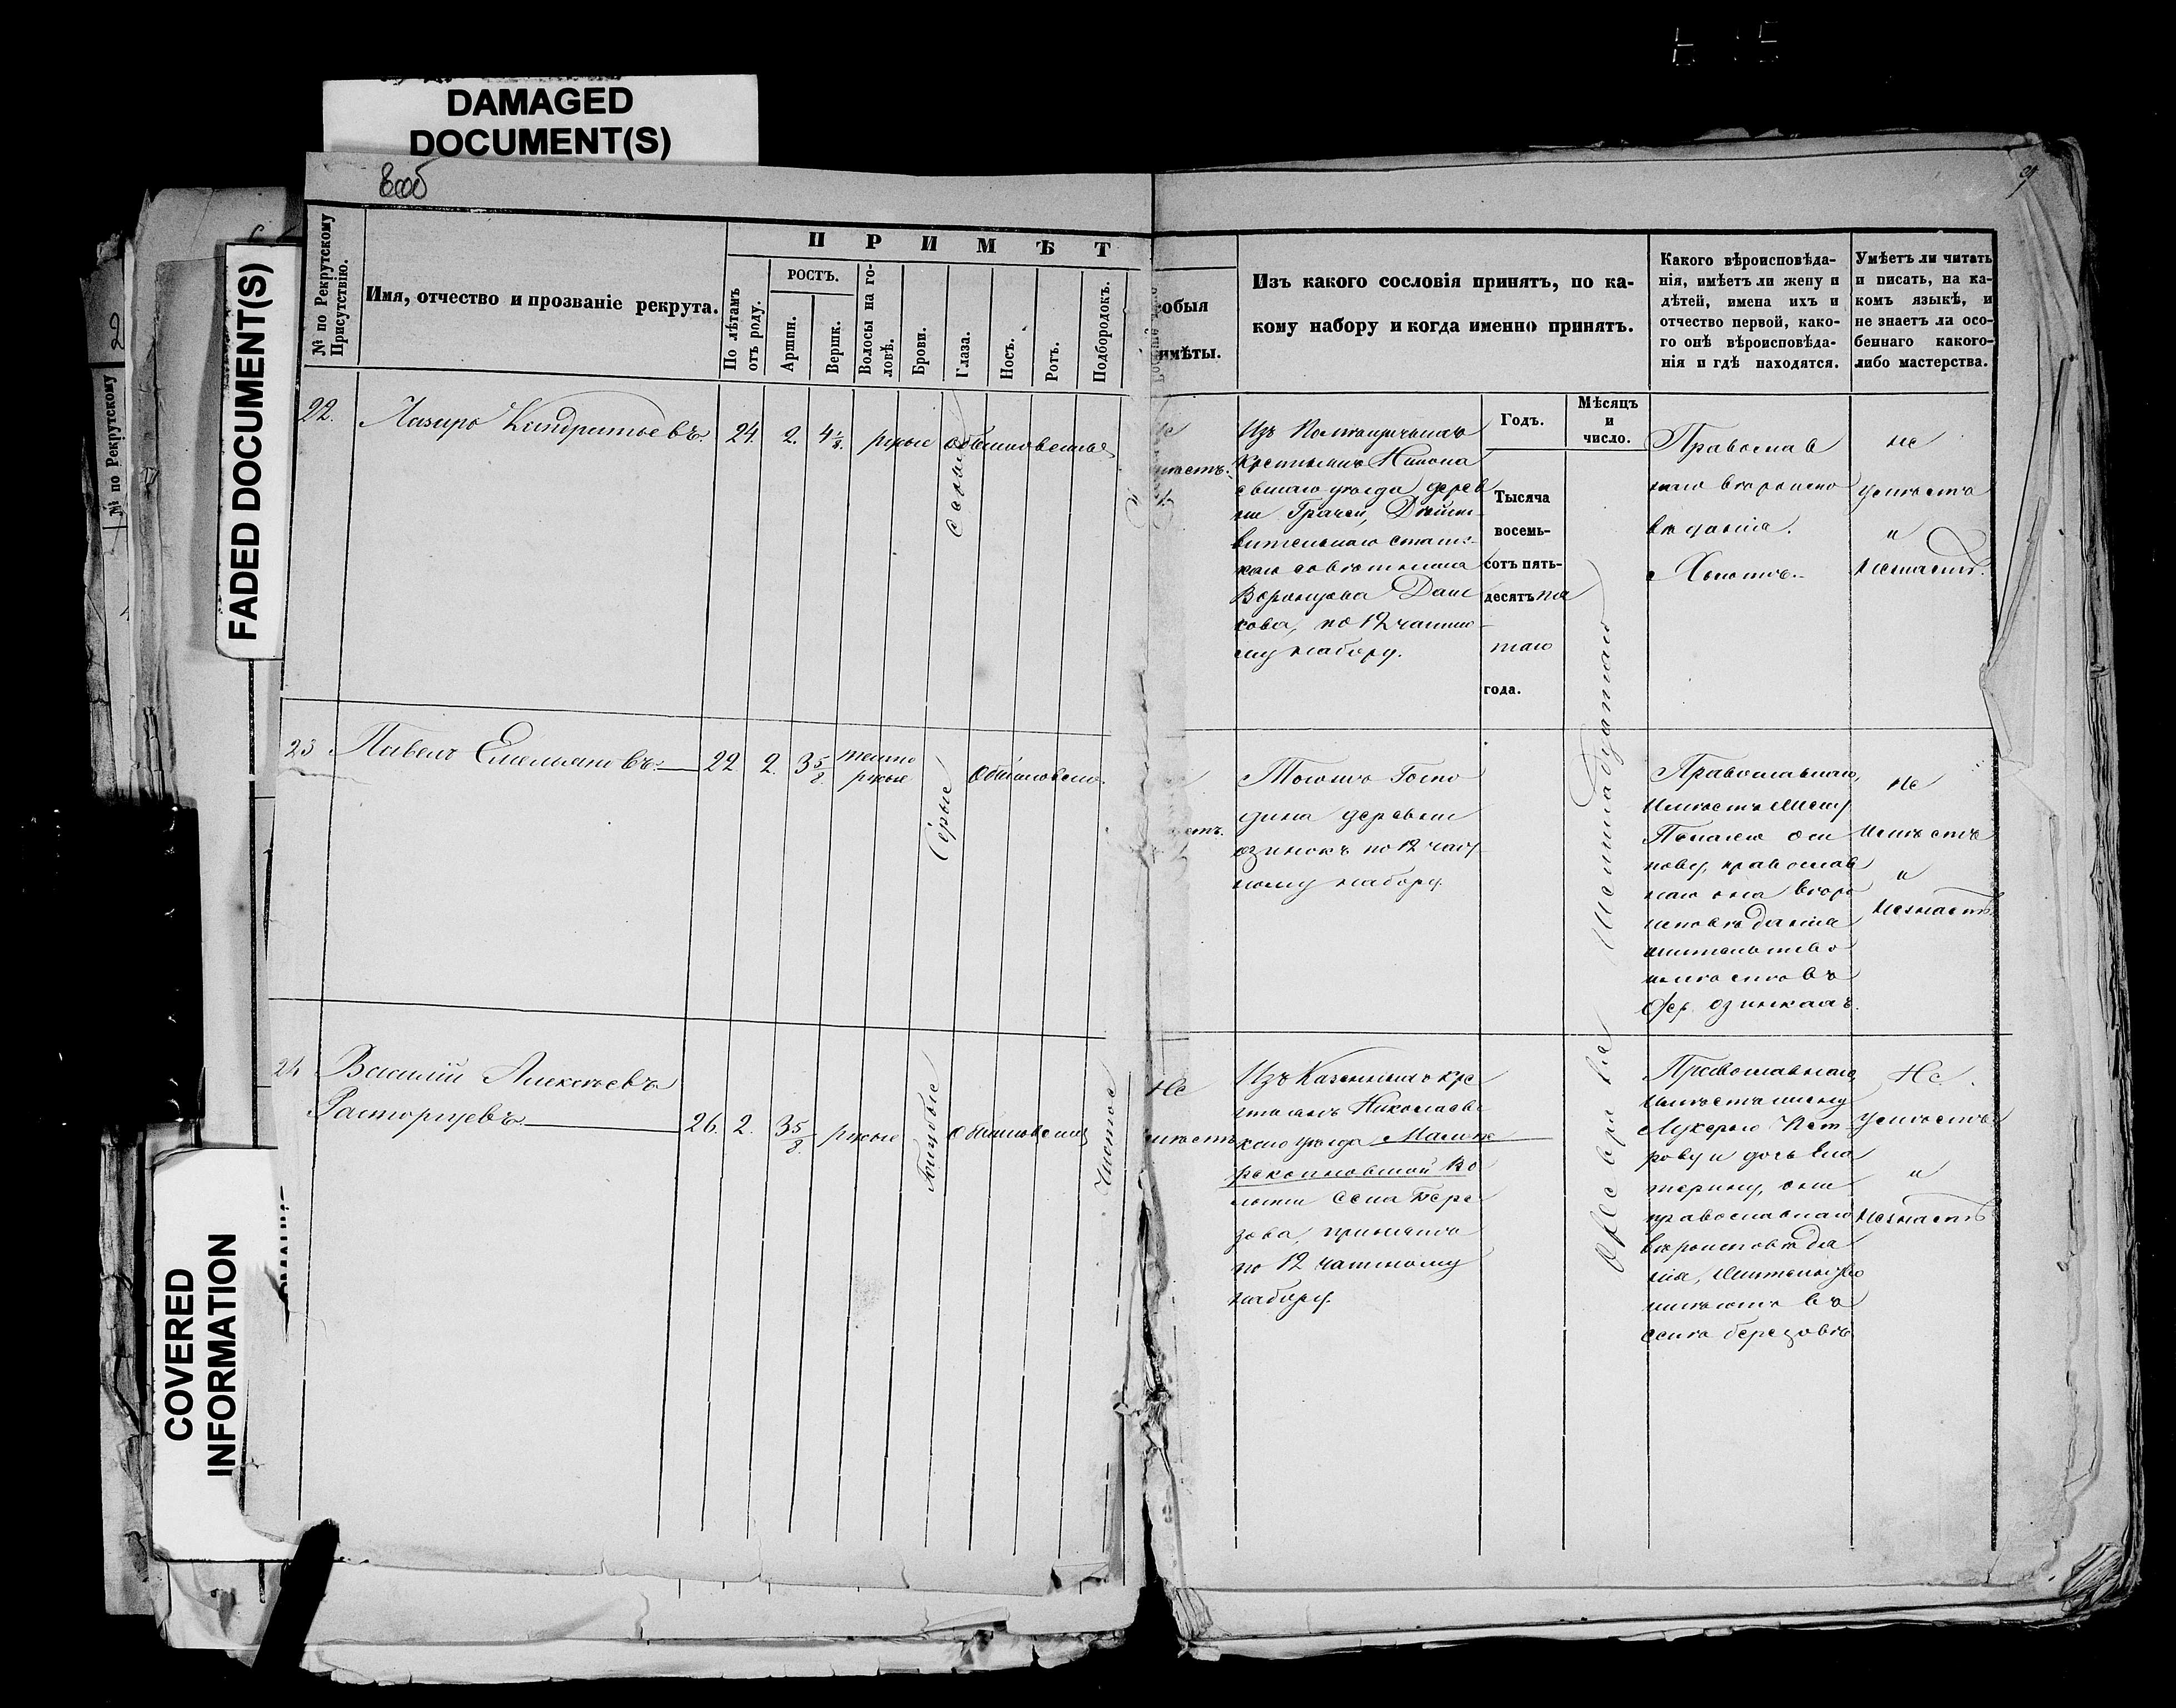 DAMAGED
DOCUMENT(S)
FADED DOCUMENT(S)
COVERED
INFORMATION
2
№ по Рекрутскому
№ по Рекрутскому
Присутствію.
Имя, отчество и прозваніе рекрута.
П Р И М Ѣ Т
По лѣтамъ
отъ роду.
РОСТЪ.
Аршин.
Вершк.
Волосы на го-
ловѣ.
Брови.
Глаза.
Носъ.
Ротъ.
Подбородокъ.
собыя
имѣты.
Изъ какого сословія принятъ, по ка-
кому набору и когда именно принятъ.
Годъ.
Мѣсяцъ
и
число.
Какого вѣроисповѣда-
нія, имѣетъ ли жену и
дѣтей, имена ихъ и
отчество первой, како-
го онѣ вѣроисповѣда-
нія и гдѣ находятся.
Умѣетъ ли читать
и писать, на ка-
комъ языкѣ, и
не знаетъ ли осо-
беннаго какого-
либо мастерства.
22.
Лазарь Кондратьевъ.
24. 2. 4 1/8. русые
обыкновенные
Изъ Помѣщичьихъ
Крестьянъ Никола
евскаго уѣзда дерев
ни Грачей, Дѣйст-
вительнаго статс-
каго совѣтника
Воронцова Даш
кова, по 12 частно-
му набору.
Тысяча
восемь-
сотъ пять-
десятъ пя
таго
года.
Православ
наго вѣроиспо
вѣданія.
Холостъ.
не
умѣетъ
и
незнаетъ.
23
Павелъ Емельяновъ.
22 2. 3 5/8 темно
русые
Сѣрые
обыкновенн.
Тогожъ Госпо
дина деревни
озинокъ по 12 част
ному набору.
Православнаго,
Имѣетъ жену
Пелагею оси
пову, православ
наго она вѣро
исповѣданія
жительство
имѣетъ въ
дер. озинкахъ.
не
умѣетъ
и
незнаетъ.
24
Василій Алексѣевъ
Расторгуевъ.
26. 2. 3 5/8. русые
Голубые
обыкновенный
Чистое
Не
имѣетъ
Изъ Казенныхъ кре
стьянъ Николаевс
каго уѣзда
во
лости села Бере
зова, принятъ
по 12 частному
набору.
Православнаго,
имѣетъ жену
Лукерью Пет
рову и дочь Ека
терину, они
православнаго
вѣроисповѣда
нія, жительство
имѣютъ въ
селѣ березовѣ
Не
умѣетъ
и
незнаетъ